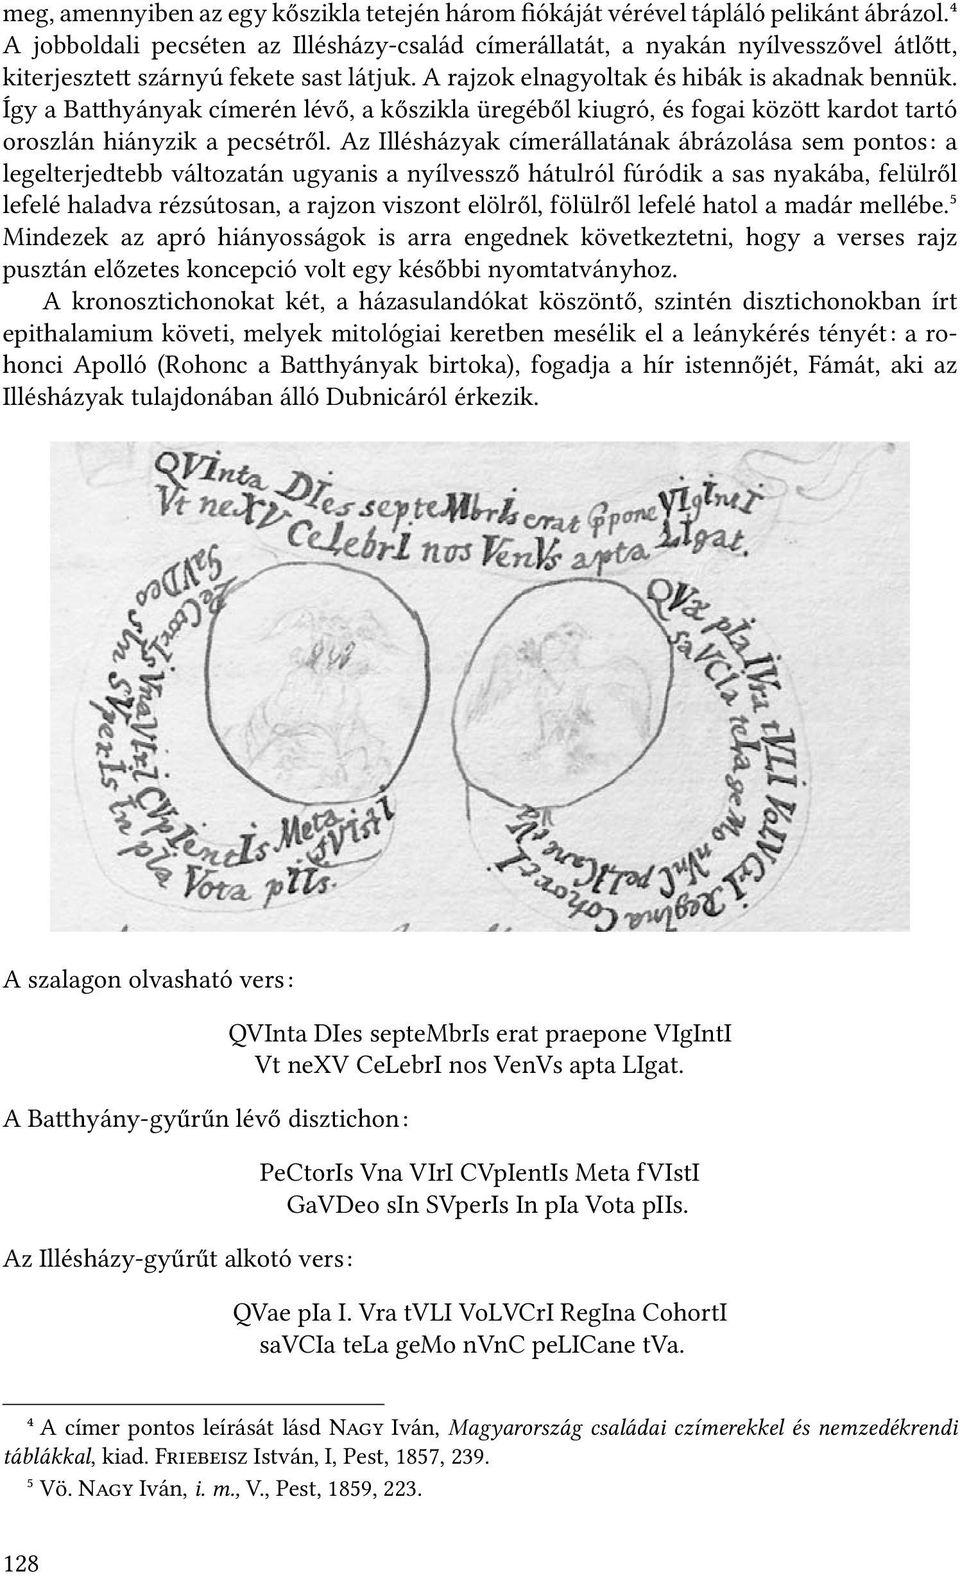 meg, amennyiben az egy kőszikla tetején három fiókáját vérével tápláló pelikánt ábrázol.⁴
A jobboldali pecséten az Illésházy-család címerállatát, a nyakán nyílvesszővel átlőtt,
kiterjesztett szárnyú fekete sast látjuk. A rajzok elnagyoltak és hibák is akadnak bennük.
Így a Batthyányak címerén lévő, a kőszikla üregéből kiugró, és fogai között kardot tartó
oroszlán hiányzik a pecsétről. Az Illésházyak címerállatának ábrázolása sem pontos: a
legelterjedtebb változatán ugyanis a nyílvessző hátulról fúródik a sas nyakába, felülről
lefelé haladva rézsútosan, a rajzon viszont elölről, fölülről lefelé hatol a madár mellébe.⁵
Mindezek az apró hiányosságok is arra engednek következtetni, hogy a verses rajz
pusztán előzetes koncepció volt egy későbbi nyomtatványhoz.
A kronosztichonokat két, a házasulandókat köszöntő, szintén disztichonokban írt
epithalamium követi, melyek mitológiai keretben mesélik el a leánykérés tényét: a ro-
honci Apolló (Rohonc a Batthyányak birtoka), fogadja a hír istennőjét, Fámát, aki az
Illésházyak tulajdonában álló Dubnicáról érkezik.
QVInta DIes septeMbrIs erat ppone VIgIntI
Vt neXV CeLebrI nos VenVs apta LIgat.
PeCtorIs Vna VIrI CVpIentIs Meta fVIstI
GaVDeo sIn SVperIs In pIa Vota pIIs.
QVæ pIa IVra tVLI VoLVCrI RegIna CohortI
saVCIa teLa geMo nVnC peLICane tVa
A szalagon olvasható vers:
QVInta DIes septeMbrIs erat praepone VIgIntI
Vt neXV CeLebrI nos VenVs apta LIgat.
A Batthyány-gyűrűn lévő disztichon:
PeCtorIs Vna VIrI CVpIentIs Meta fVIstI
GaVDeo sIn SVperIs In pIa Vota pIIs.
Az Illésházy-gyűrűt alkotó vers:
QVae pIa I. Vra tVLI VoLVCrI RegIna CohortI
saVCIa teLa geMo nVnC peLICane tVa.
⁴ A címer pontos leírását lásd NAGY Iván, Magyarország családai czímerekkel és nemzedékrendi
táblákkal, kiad. FRIEBEISZ István, I, Pest, 1857, 239.
⁵ Vö. NAGY Iván, i. m., V., Pest, 1859, 223.
128